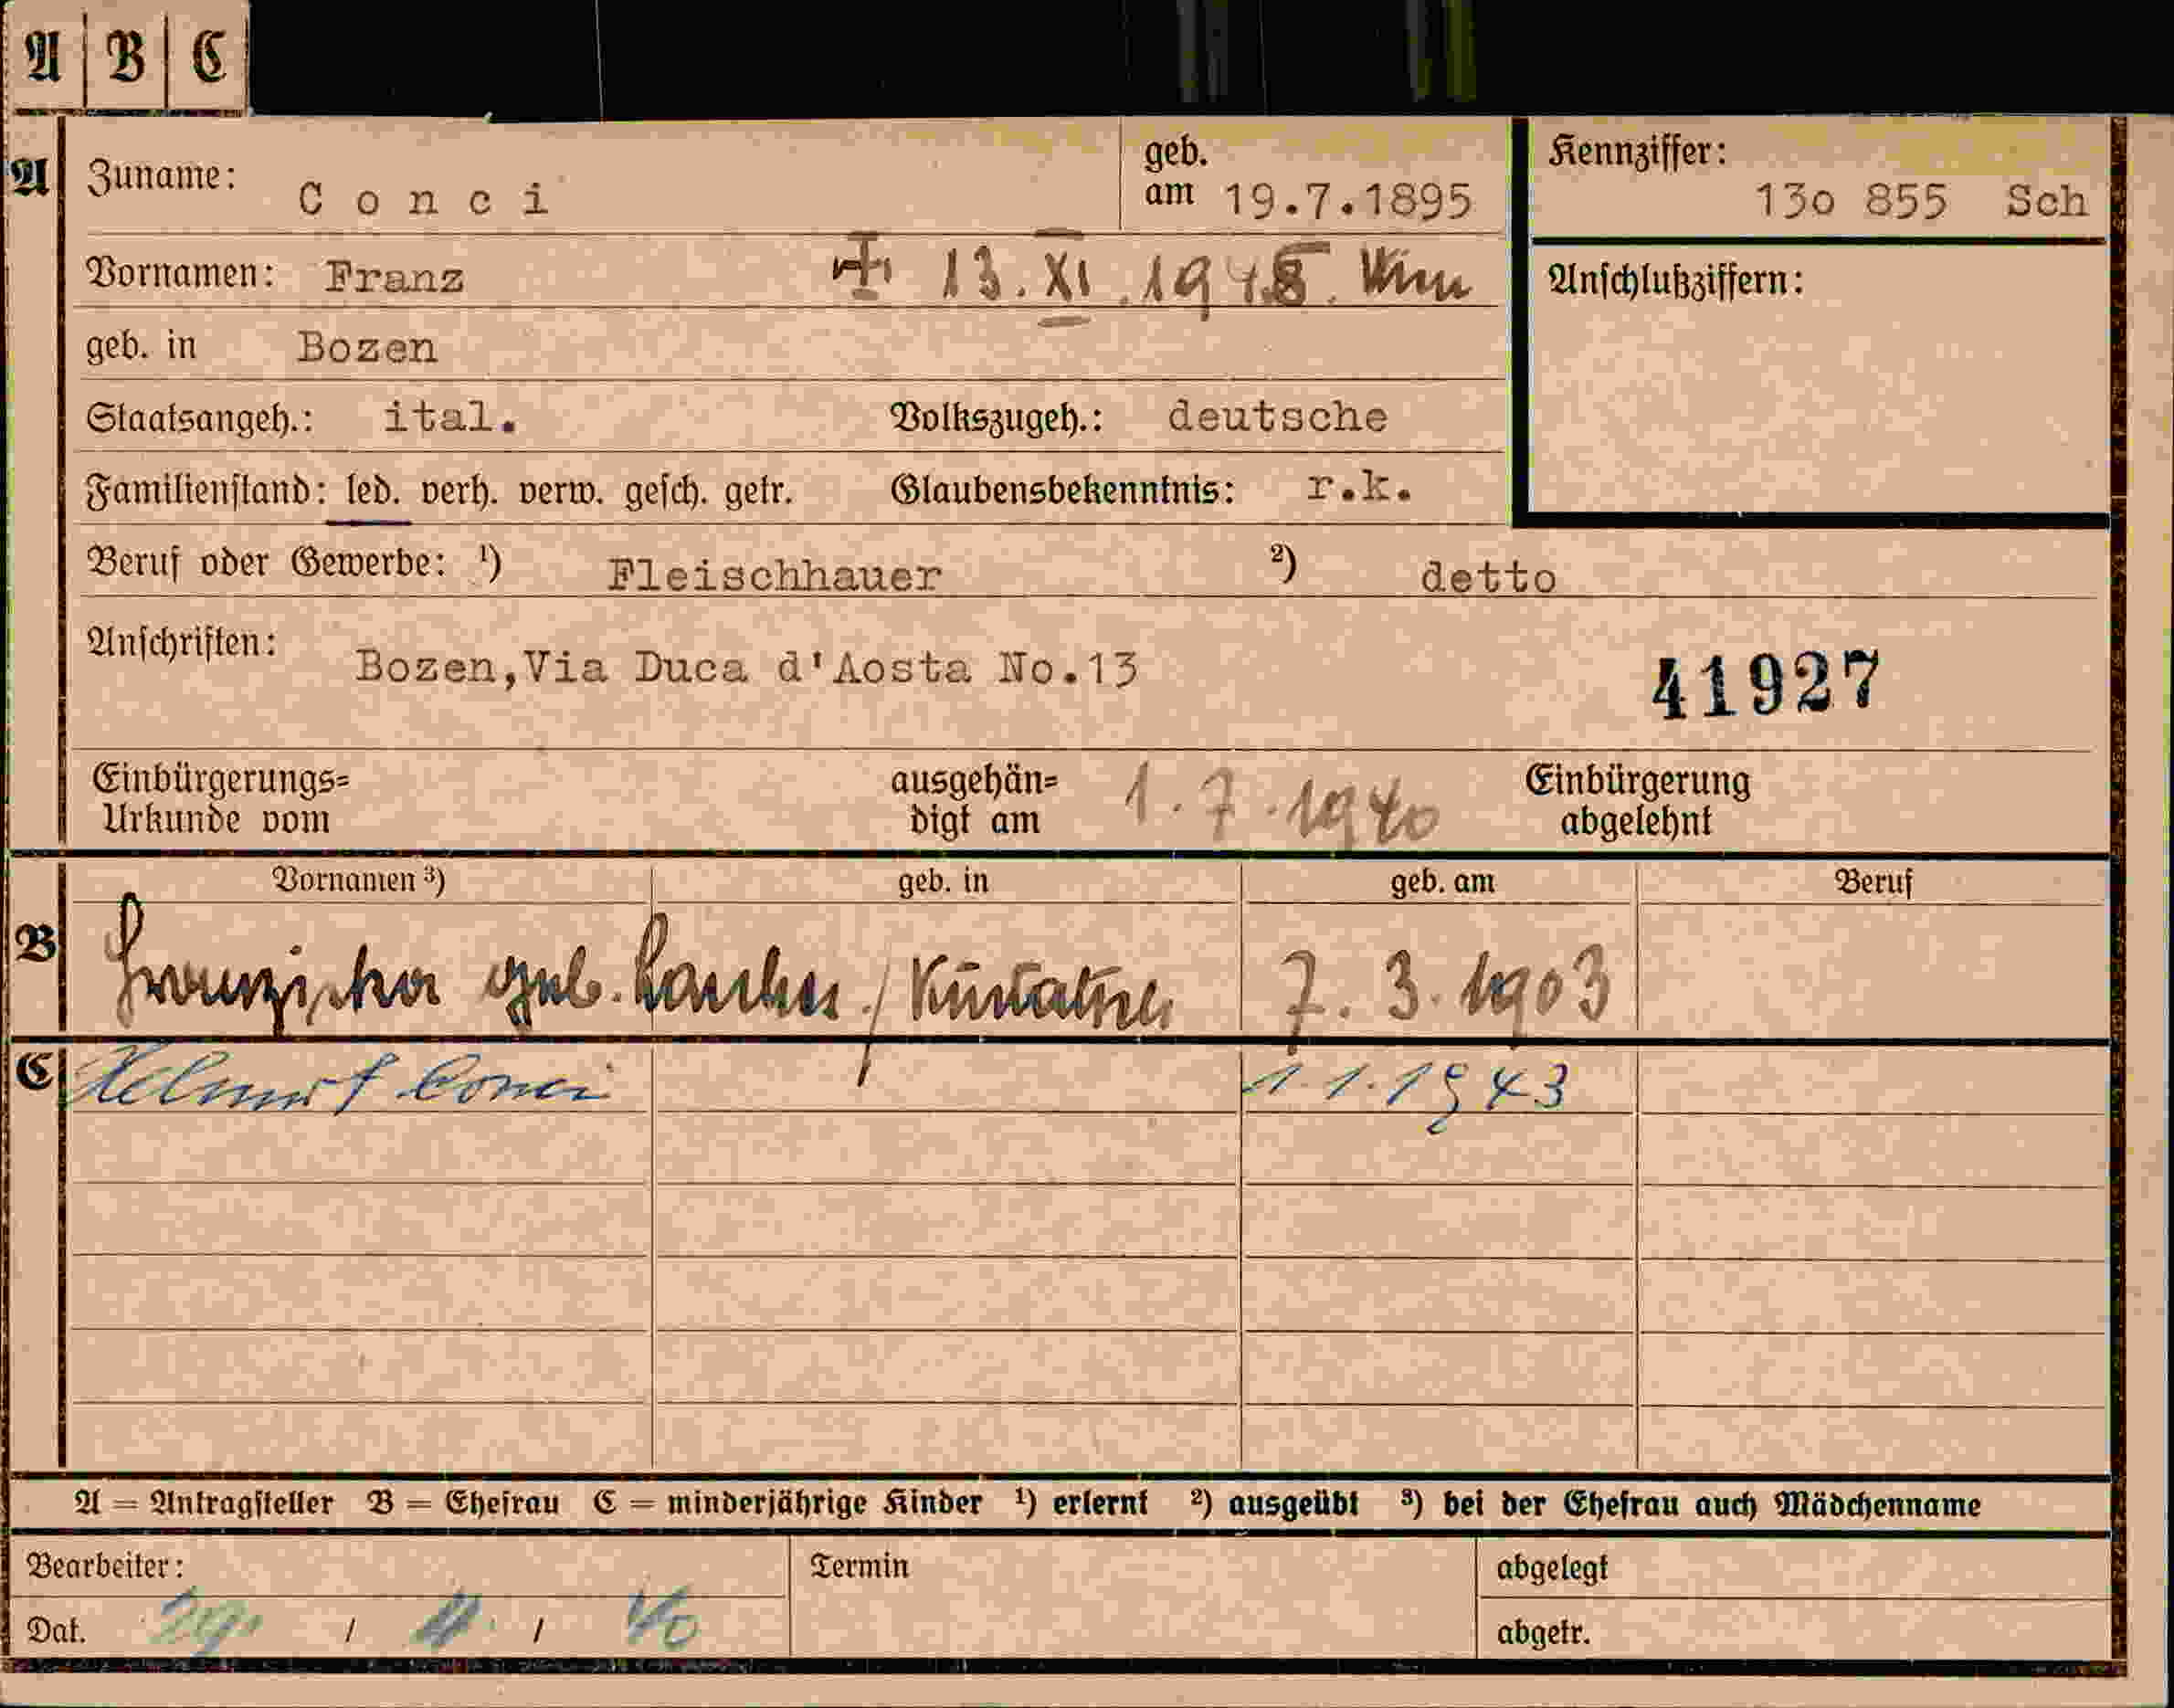 A B C
A Zuname: Conci geb. am 19.7.1895 Kennziffer: 13o 855 Sch
Vornamen: Franz 13. XI. 194 Anschlußziffern:
geb. in Bozen
Staatsangeh.: ital. Volkszugeh.: deutsche
Familienstand: led. verh. verw. gesch. getr. Glaubensbekenntnis: r.k.
Beruf oder Gewerbe: ¹) Fleischhauer ²) detto
Anschriften: Bozen,Via Duca d'Aosta No.13
41927
Einbürgerungs= Urkunde vom ausgehän= digt am 1.7.1940 Einbürgerung abgelehnt
Vornamen ³) geb. in geb. am Beruf
B Franziska geb. 7. 3. 1903
C Helmut Conci 1.1.1943
A = Antragsteller B = Ehefrau C = minderjährige Kinder ¹) erlernt ²) ausgeübt ³) bei der Ehefrau auch Mädchenname
Bearbeiter: Termin abgelegt
Dat. / / 40 abgetr.